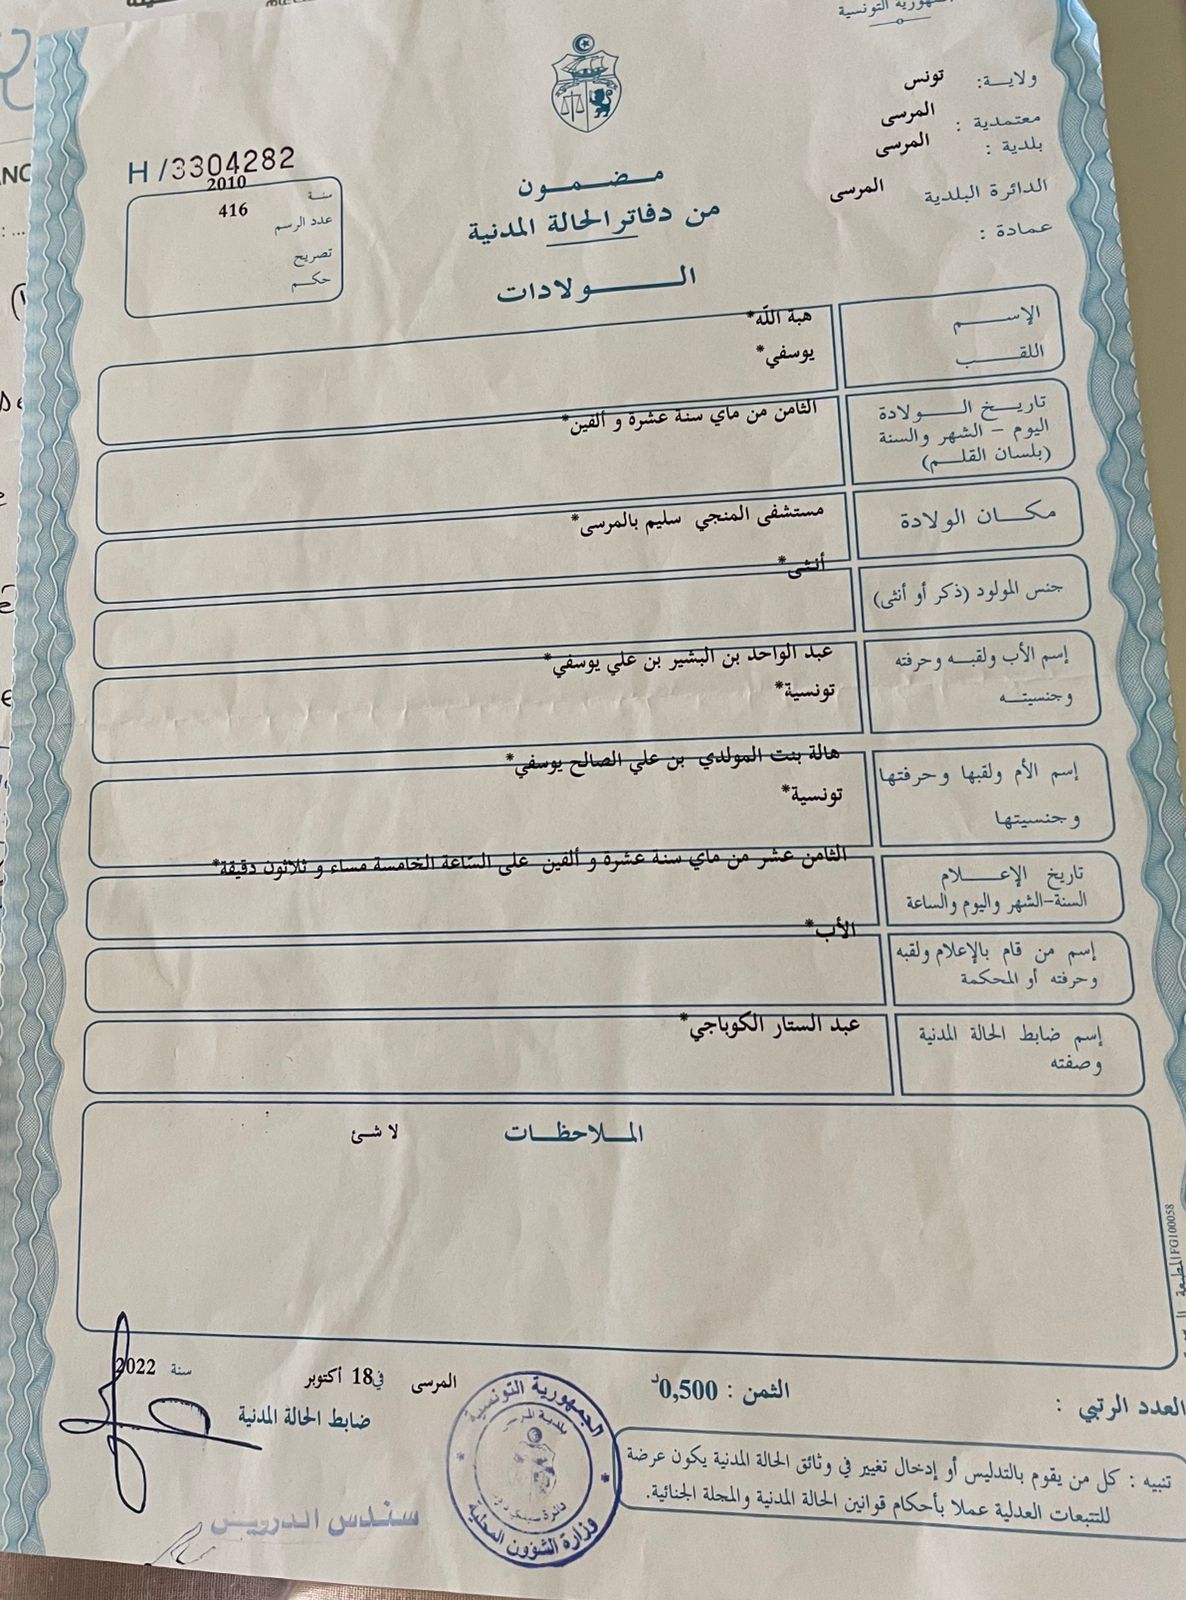 الجمهورية التونسية
ولاية: تونس
معتمدية: المرسى
بلدية: المرسى
الدائرة البلدية المرسى
عمادة:
H/3304282
سنة 2010
عدد الرسم 416
تصريح
حكم
مضمون
من دفاتر الحالة المدنية
الولادات
الإسم هبة الله*
اللقب يوسفي*
تاريخ الولادة
اليوم - الشهر والسنة
(بلسان القلم)
الثامن من ماي سنة عشرة و ألفين*
مكان الولادة
مستشفى المنجي سليم بالمرسى*
جنس المولود (ذكر أو أنثى)
أنثى*
إسم الأب ولقبه وحرفته
وجنسيته
عبد الواحد بن البشير بن علي يوسفي*
تونسية*
إسم الأم ولقبها وحرفتها
وجنسيتها
هالة بنت المولدي بن علي الصالح يوسفي*
تونسية*
تاريخ الإعلام
السنة-الشهر واليوم والساعة
الثامن عشر من ماي سنة عشرة و ألفين على الساعة الخامسة مساء و ثلاثون دقيقة*
إسم من قام بالإعلام ولقبه
وحرفته أو المحكمة
الأب*
إسم ضابط الحالة المدنية
وصفته
عبد الستار الكوباجي*
الملاحظات
لا شئ
المطبعة
FG100058
العدد الرتبي :
الثمن : 0,500د
المرسى في 18 أكتوبر سنة 2022
ضابط الحالة المدنية
تنبيه : كل من يقوم بالتدليس أو إدخال تغيير في وثائق الحالة المدنية يكون عرضة
للتتبعات العدلية عملا بأحكام قوانين الحالة المدنية والمجلة الجنائية.
الجمهورية التونسية
وزارة الشؤون المحلية
سندس الدرويش